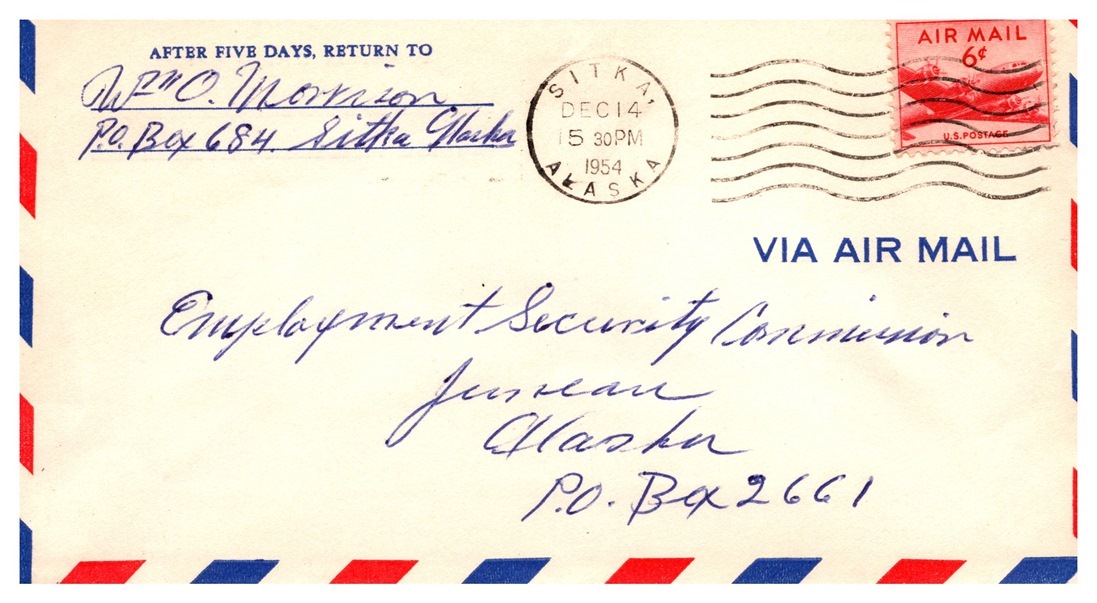 AFTER FIVE DAYS, RETURN TO
Wm O. Morrison
P.O. Box 684. Sitka Alaska
SITKA,
DEC 14
15 30PM
1954
ALASKA
AIR MAIL
6¢
U.S. POSTAGE
VIA AIR MAIL
Employment Security Commission
Juneau
Alaska
P.O. Box 2661